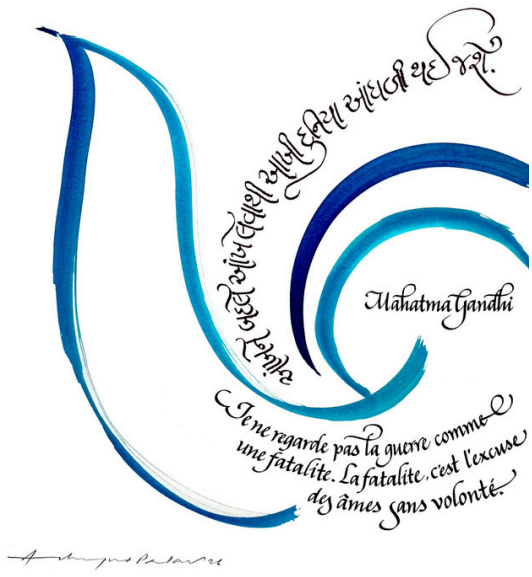 આંખને બદલે આંખ લેવાથી આખી દુનિયા આંધળી થઈ જશે.
Mahatma Gandhi
Je ne regarde pas la guerre comme
une fatalite. La fatalite, c'est l'excuse
des âmes sans volonté.